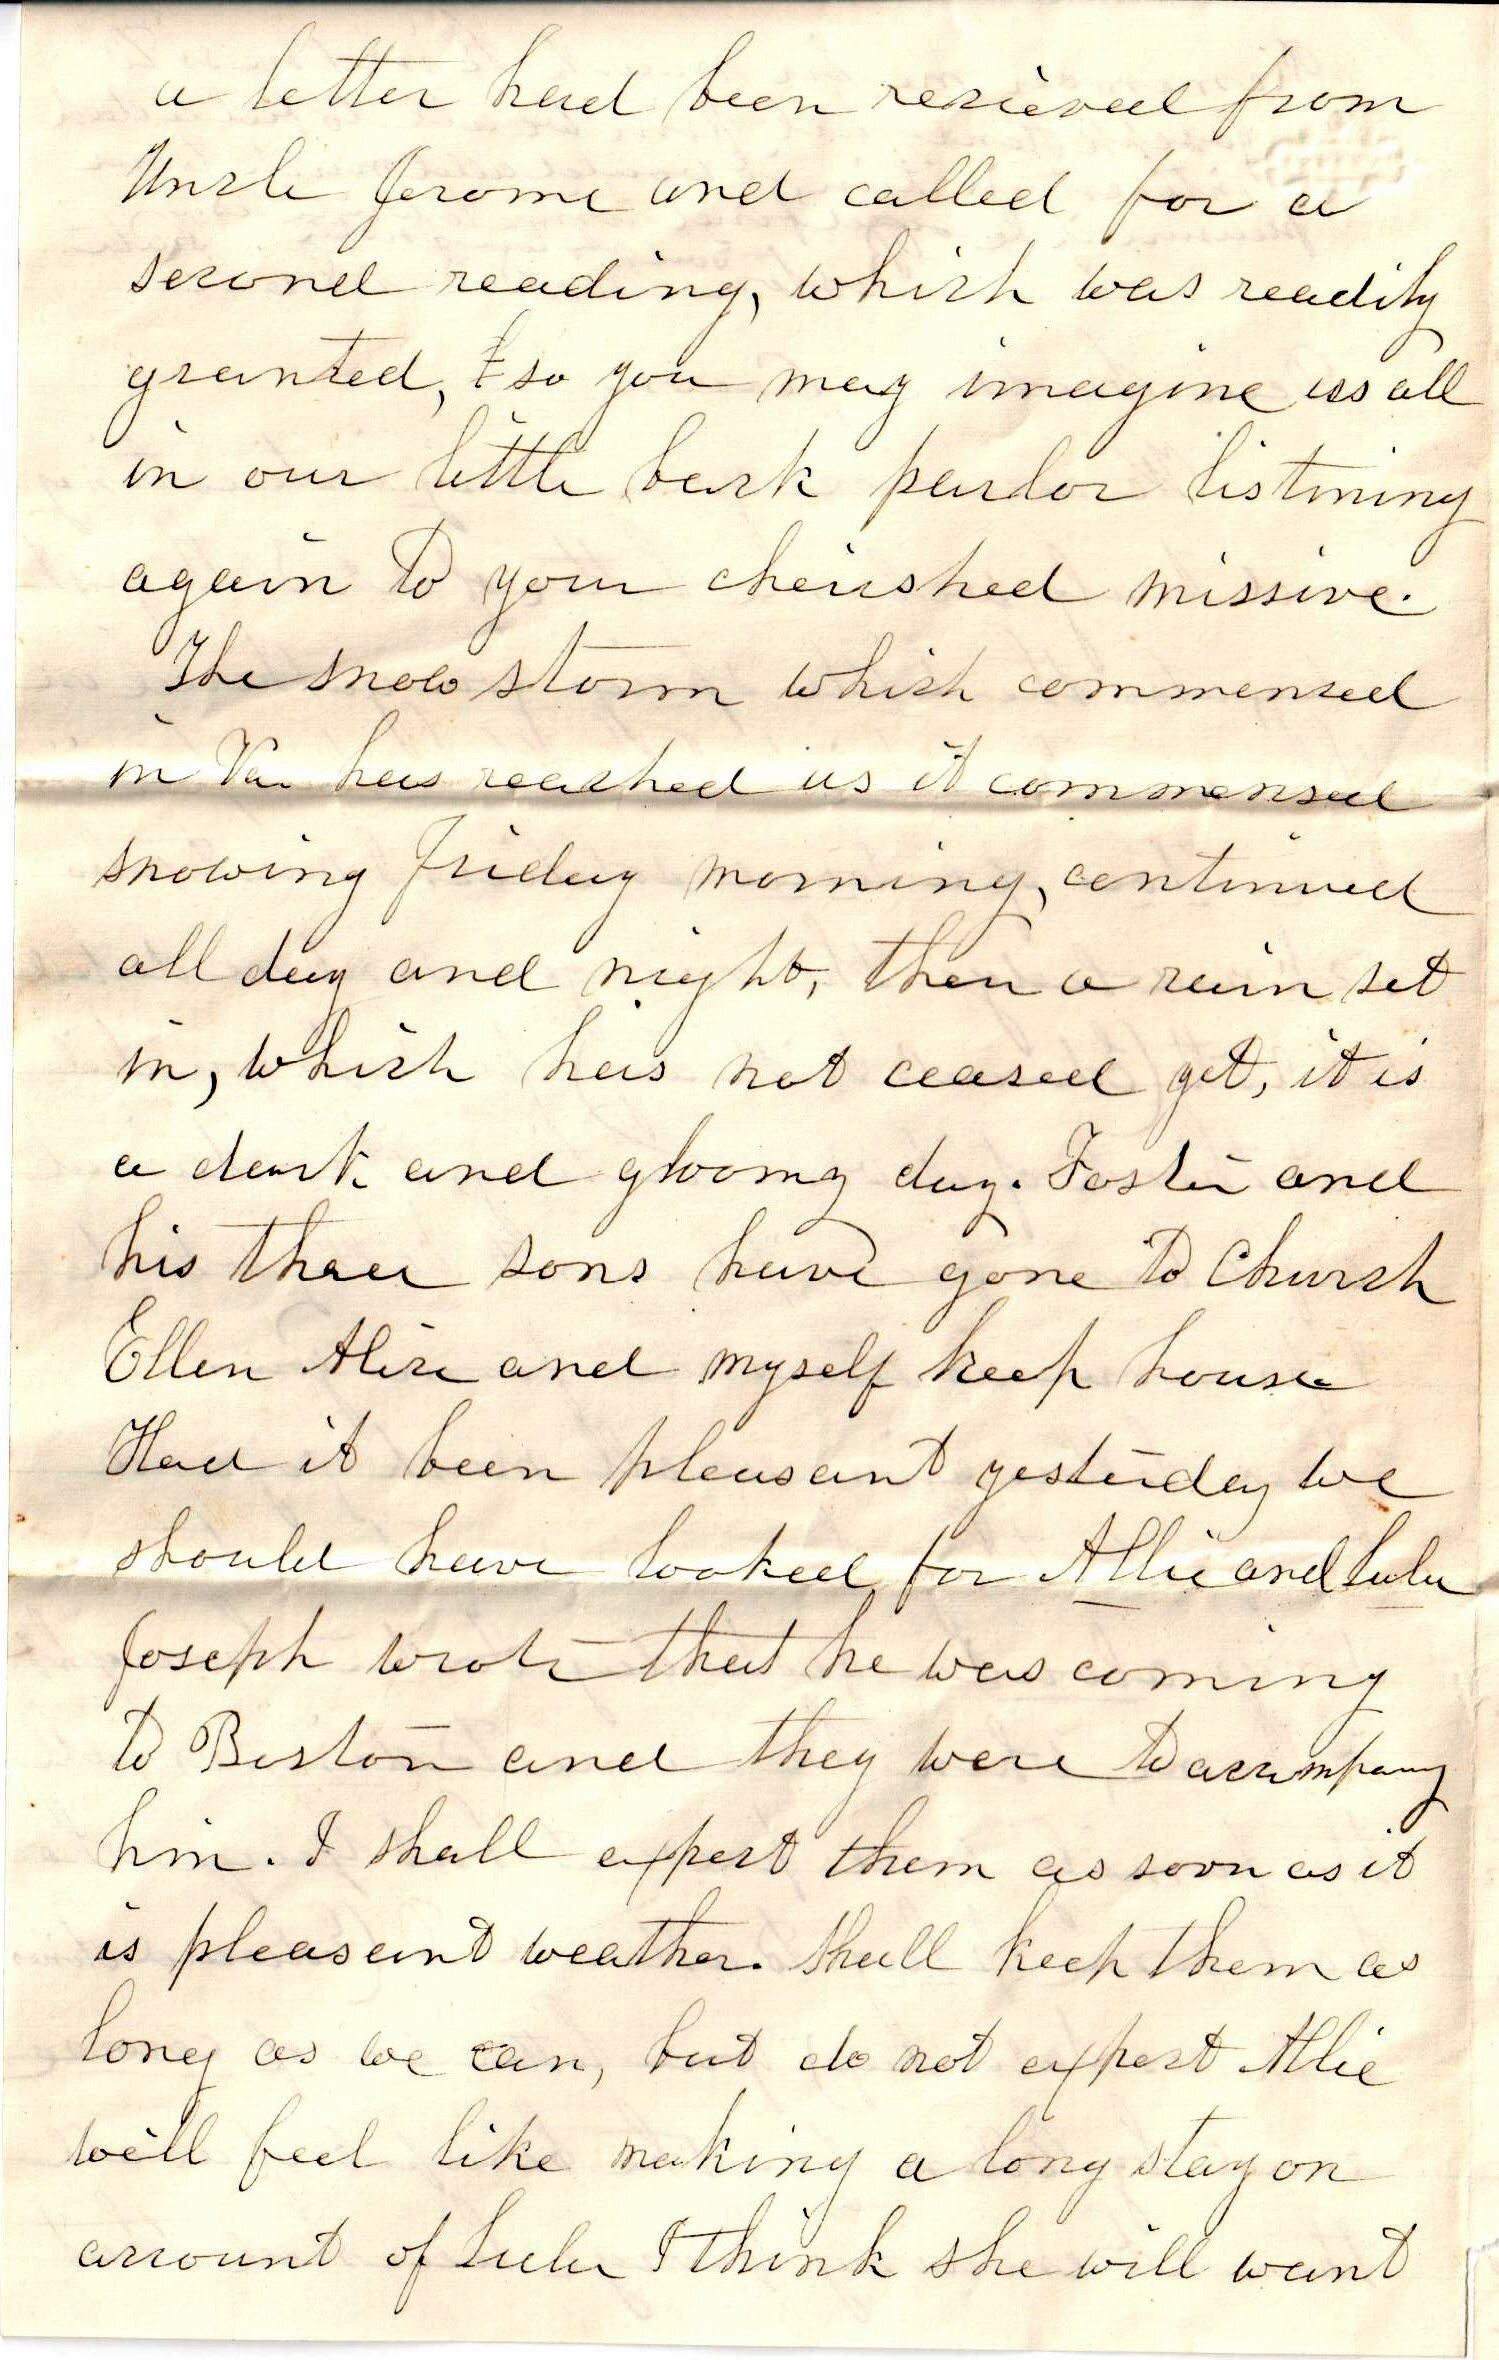 a letter had been recieved from
Uncle Jerome and called for a
second reading, which was readily
granted, & so you may imagine us all
in our little back parlor listning
again to your cherished missive.
The snow storm which commenced
in Va. has reached us it commensed
snowing Friday morning, continued
all day and night, then a rain set
in, which has not ceased yet, it is
a dark and gloomy day. Foster and
his three sons have gone to Church
Ellen Alice and myself keep house
Had it been pleasant yesterday we
should have looked for Allie and Lulu
Joseph wrote that he was coming
to Boston and they were to accompany
him. I shall expect them as soon as it
is pleasant weather. Shall keep them as
long as we can, but do not expect Allie
will feel like making a long stay on
account of Lulu I think she will want